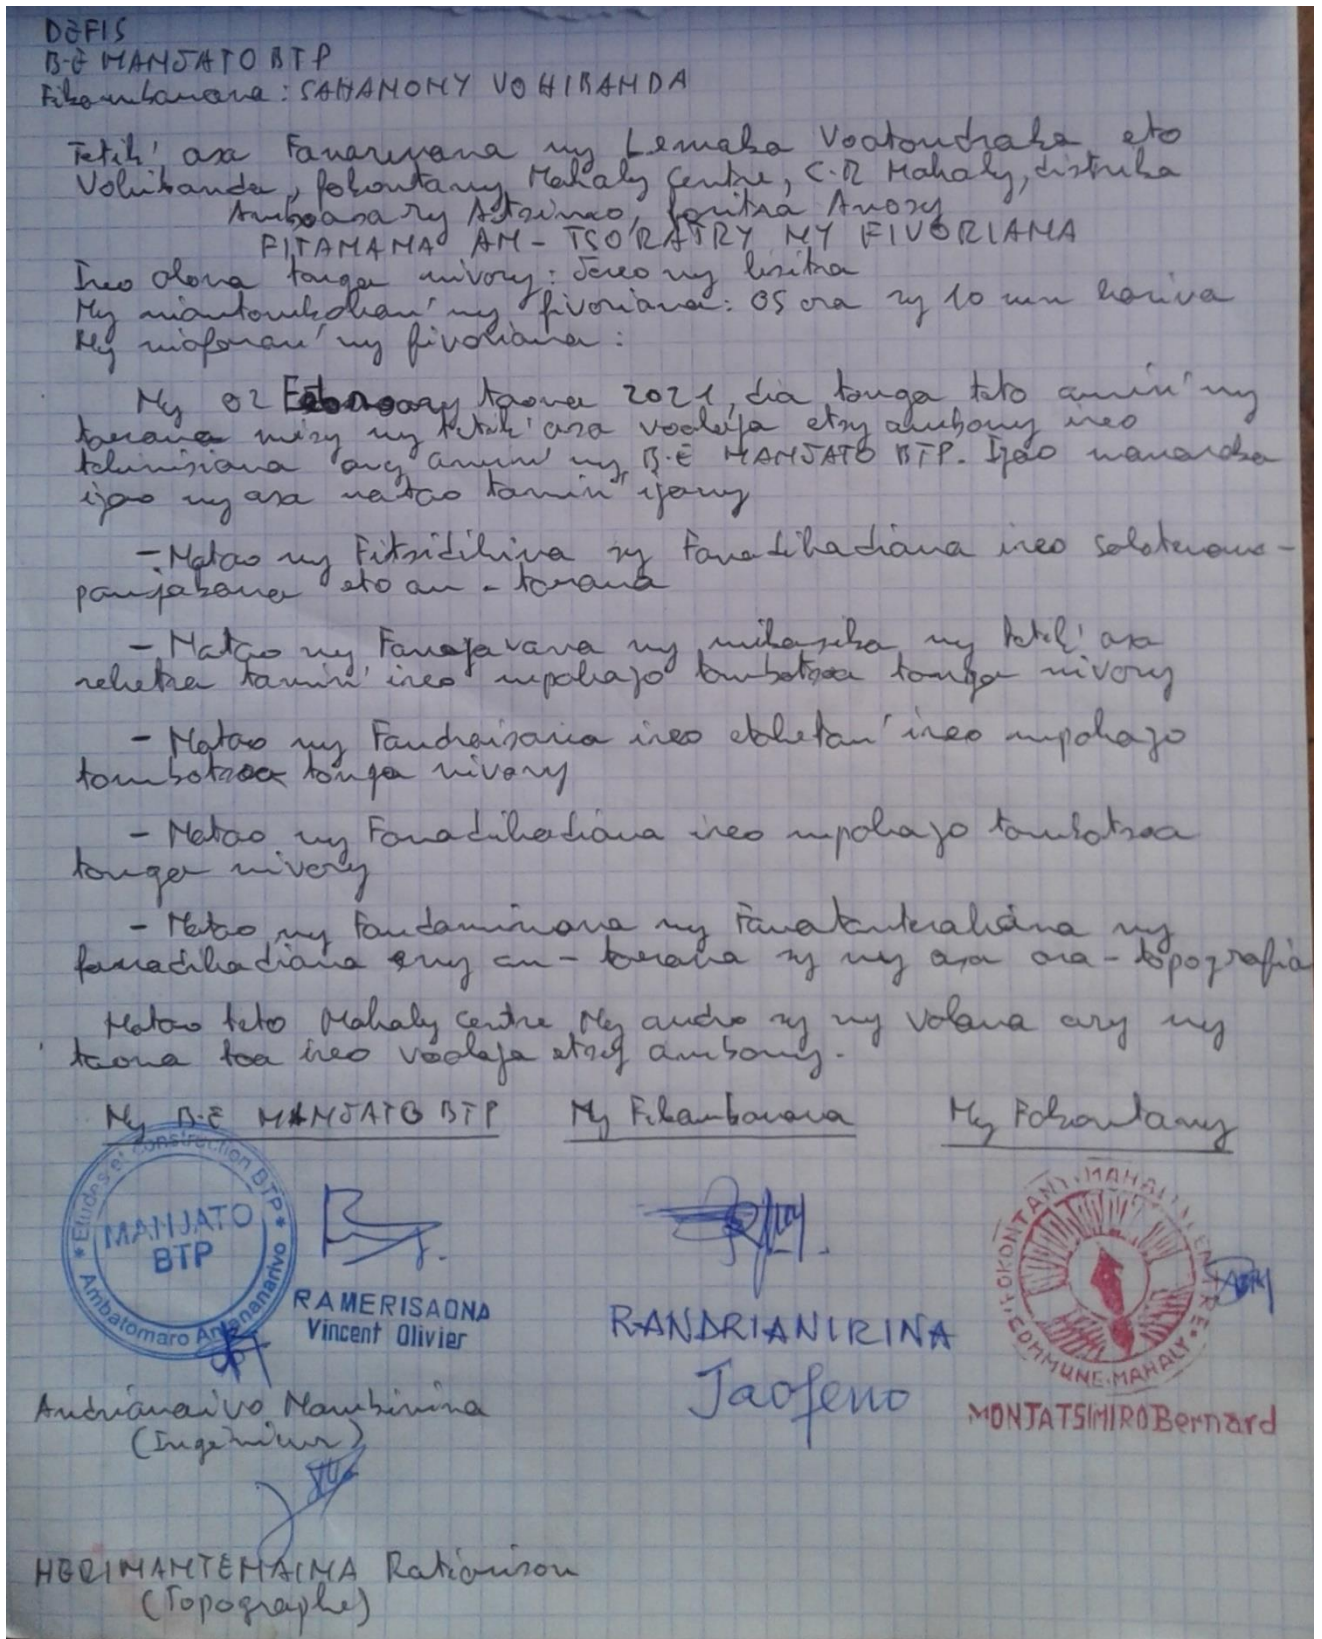 DEFIS
B-E MANJATO BTP
Fikambanana : SAHANONY VOHIBANDA
Tetik' asa Fanarenana ny Lemaka Voatondraka eto
Vohibanda, fokontany Mahaly Centre, C.R Mahaly, distrika
Amboasary Atsimo, faritra Anosy
FITANANA AN-TSORATRY NY FIVORIANA
Ireo olona tonga nivory : Jereo ny lisitra
Ny niantombohan' ny fivoriana : 05 ora sy 10 mn hariva
Ny niafaran' ny fivoriana :
Ny 02 Febroary taona 2021, dia tonga teto amin' ny
tanana misy ny tetik' asa voalaja etsy ambony ireo
teknisiana avy amin' ny B-E MANJATO BTP. Izao manaraka
izao ny asa natao tamin' izany
- Natao ny Fitsidihina sy Fanadihadiana ireo solotenam-
panjakana eto an-tanana
- Natao ny Fanazavana ny mikasika ny tetik' asa
rehetra tamin' ireo mpahazo tombotsoa tonga nivory
- Natao ny Fandraisana ireo etahetan' ireo mpahazo
tombotsoa tonga nivory
- Natao ny Fanadihadiana ireo mpahazo tombotsoa
tonga nivory
- Natao ny Fandaminana ny Fanatanterahana ny
fanadihadiana eny an-tanana sy ny asa ara-topografia
Natao teto Mahaly Centre Ny andro sy ny volana ary ny
taona toa ireo voalaja etsy ambony.
Ny B-E MANJATO BTP Ny Fikambanana Ny Fokontany
* Etudes et construction BTP *
MANJATO
BTP
Ambatomaro Antananarivo
RAMERISAONA
Vincent Olivier
RANDRIANIRINA
Jaofeno
FOKONTANY MAHALY CENTRE
COMMUNE MAHALY
MONJATSIMIRO Bernard
Andrianaivo Mambinina
(Ingénieur)
HERIMANTENAINA Rationison
(Topographe)